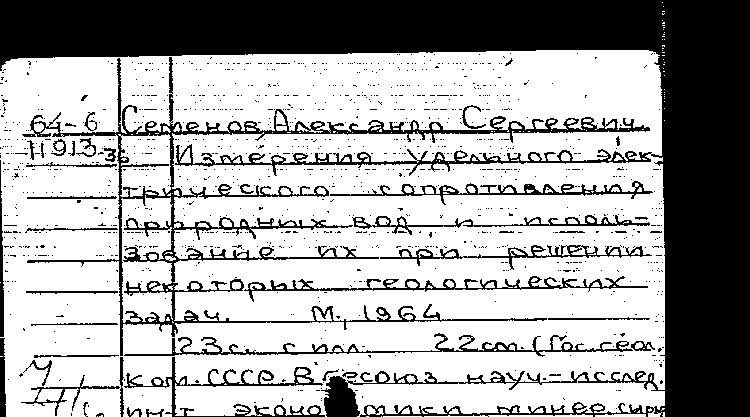 64-6 Семенов, Александр Сергеевич.
11913-36 Измерения удельного элек-
трического сопротивления
природных вод и исполь=
зование их при решении
некоторых геологических
задач. М., 1964
23с. с илл. 22см. (Гос. геол.
ком. СССР. Всесоюз. науч.-исслед.
ин-т эконо мики минер. сырь